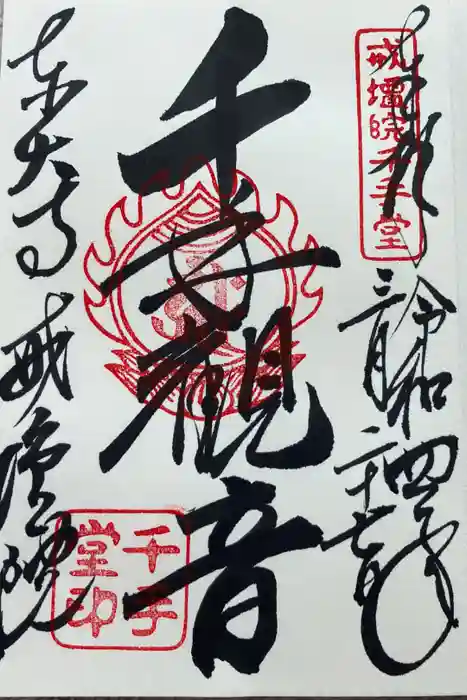 奉拝
戒壇院千手堂
令和四年
三月二十七日
千手觀音
千手堂印
東大寺 戒壇院